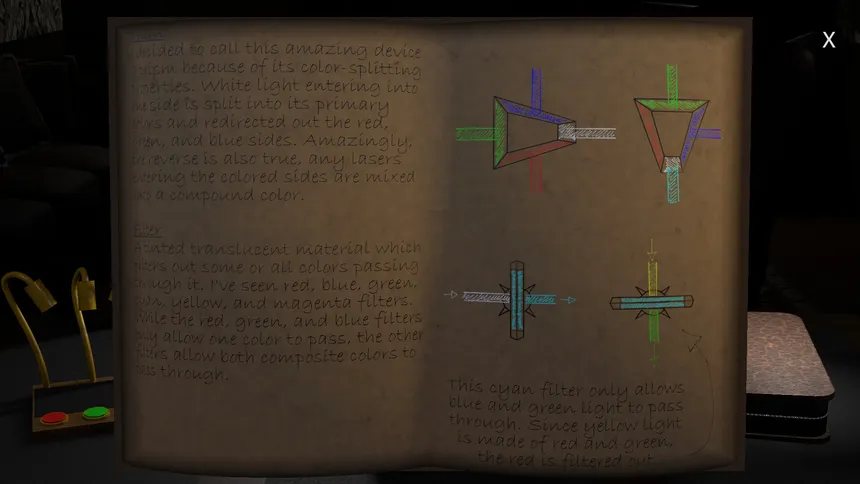 decided to call this amazing device
prism because of its color-splitting
properties. White light entering into
one side is split into its primary
colors and redirected out the red,
green, and blue sides. Amazingly,
the reverse is also true, any lasers
entering the colored sides are mixed
into a compound color.
Filter
A tinted translucent material which
filters out some or all colors passing
through it. I've seen red, blue, green,
cyan, yellow, and magenta filters.
While the red, green, and blue filters
only allow one color to pass, the other
filters allow both composite colors to
pass through.
This cyan filter only allows
blue and green light to pass
through. Since yellow light
is made of red and green,
the red is filtered out
X